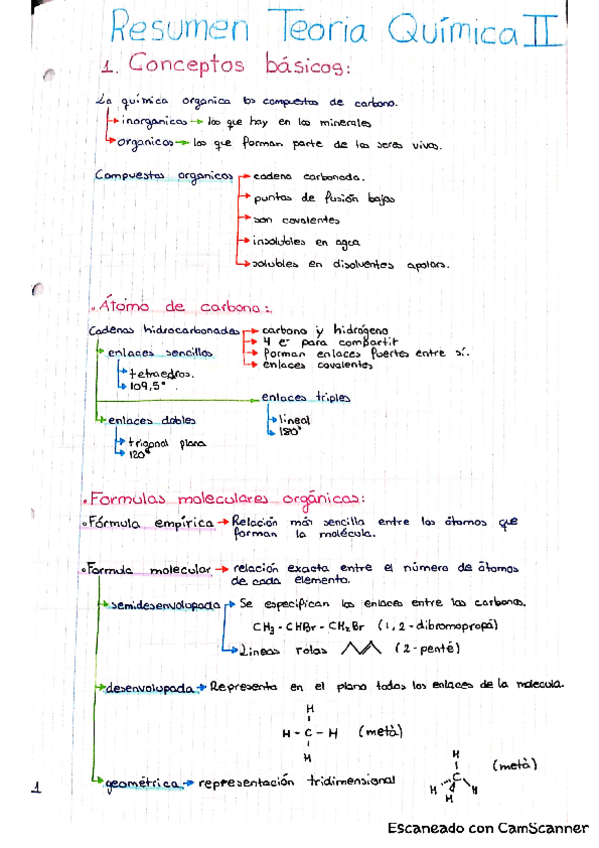 Resumen Teoria Química II
1. Conceptos básicos:
La química organica los compuestos de carbono.
inorganicos → los que hay en los minerales
organicos → los que forman parte de los seres vivos.
Compuestos organicos → cadena carbonada.
→ puntos de fusión bajos
→ son covalentes
→ insolubles en agua
→ solubles en disolventes apolars.
· Átomo de carbono:.
Cadenas hidrocarbonadas → carbono y hidrógeno
→ 4 e⁻ para compartir
→ forman enlaces fuertes entre sí.
→ enlaces covalentes
→ enlaces sencillos
→ tetraedros.
→ 109,5°.
→ enlaces triples
→ lineal
→ 180°
→ enlaces dobles
→ trigonal plana
→ 120°
· Formulas moleculares orgánicas:
• Fórmula empírica → Relación más sencilla entre los átomos que
forman la molécula.
• Formula molecular → relación exacta entre el número de átomos
de cada elemento.
→ semidesenvolupada → Se especifican los enlaces entre los carbonos.
CH₃ - CHBr - CH₂Br (1,2-dibromopropà)
→ Lineas rotas (2-penté)
→ desenvolupada → Representa en el plano todos los enlaces de la molecula.
H
H - C - H (metà)
H
→ geométrica → representación tridimensional
H
C (metà)
H H
H
1
Escaneado con CamScanner